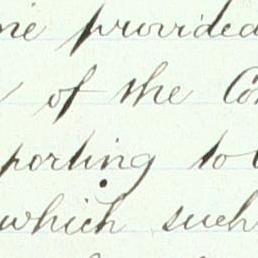 me provided
of the Co
porting to
which such